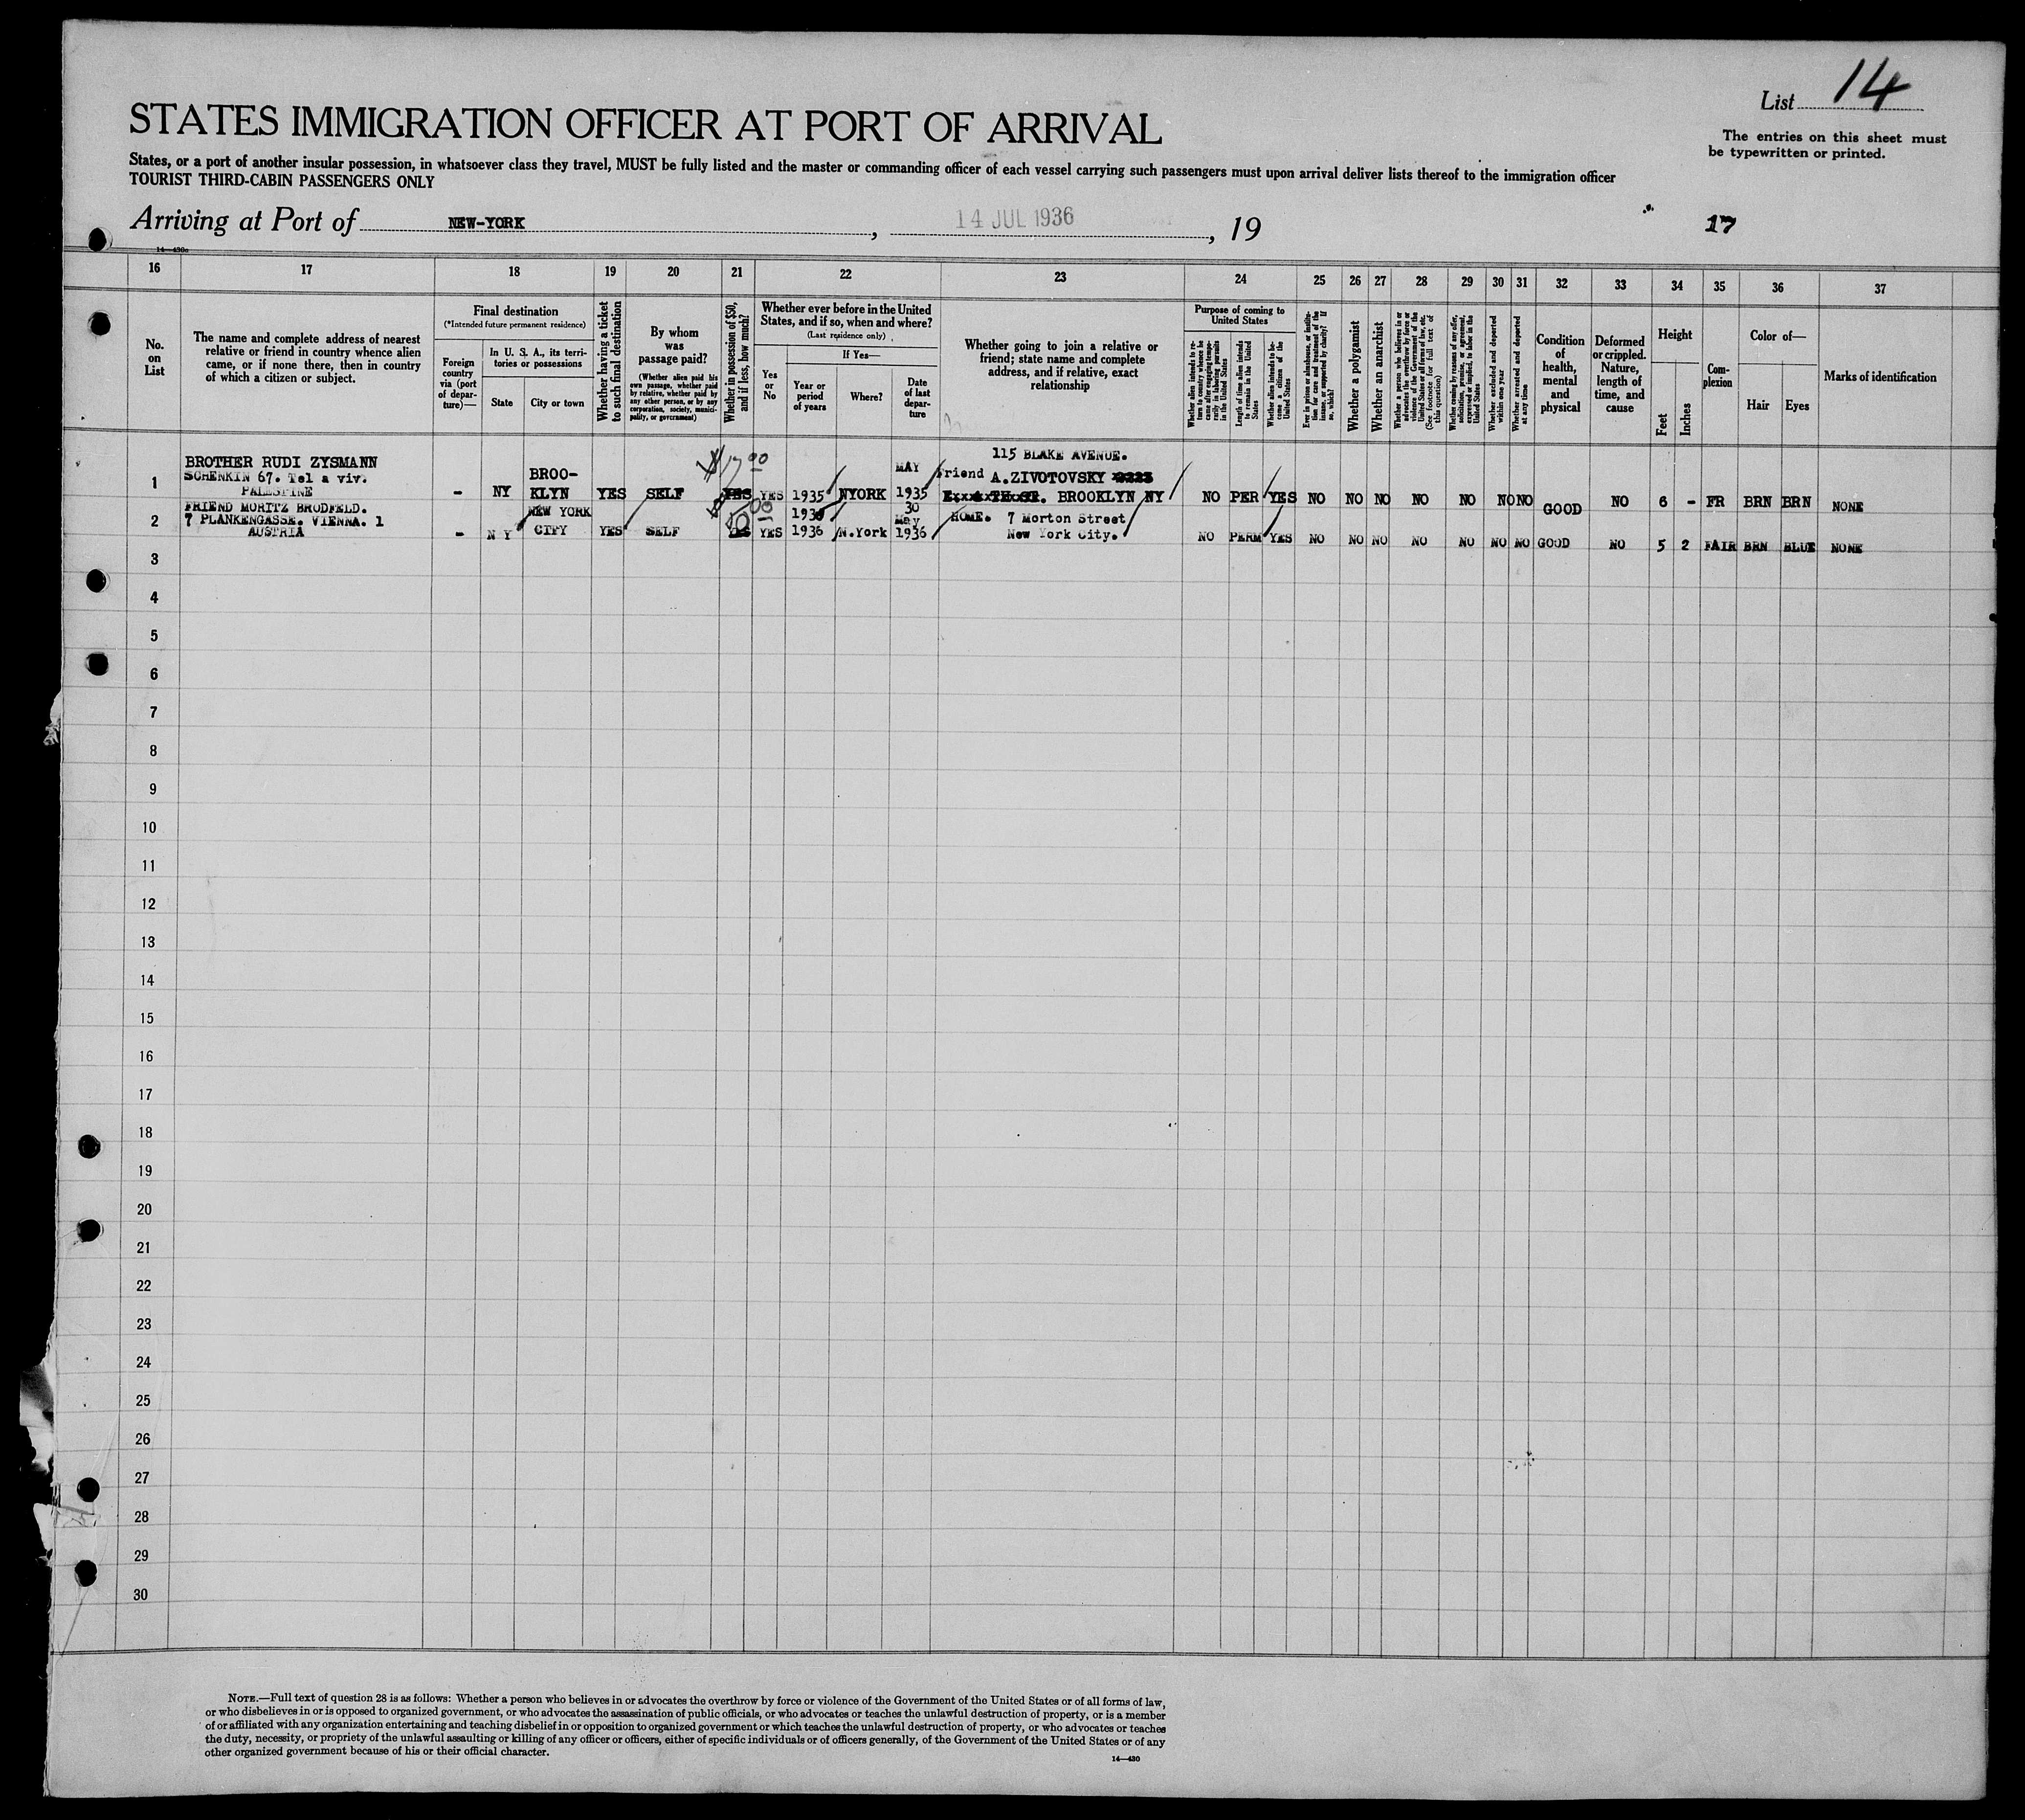 List 14
The entries on this sheet must
be typewritten or printed.
STATES IMMIGRATION OFFICER AT PORT OF ARRIVAL
States, or a port of another insular possession, in whatsoever class they travel, MUST be fully listed and the master or commanding officer of each vessel carrying such passengers must upon arrival deliver lists thereof to the immigration officer
TOURIST THIRD-CABIN PASSENGERS ONLY
Arriving at Port of NEW-YORK, 14 JUL 1936, 19 17
14—430a
16 17 18 19 20 21 22 23 24 25 26 27 28 29 30 31 32 33 34 35 36 37
No.
on
List
The name and complete address of nearest
relative or friend in country whence alien
came, or if none there, then in country
of which a citizen or subject.
Final destination
(*Intended future permanent residence)
Foreign
country
via (port
of depar-
ture)—
In U. S. A., its terri-
tories or possessions
State
City or town
Whether having a ticket
to such final destination
By whom
was
passage paid?
(Whether alien paid his
own passage, whether paid
by relative, whether paid by
any other person, or by any
corporation, society, munici-
pality, or government)
Whether in possession of $50,
and if less, how much?
Whether ever before in the United
States, and if so, when and where?
(Last residence only)
Yes
or
No
If Yes—
Year or
period
of years
Where?
Date
of last
depar-
ture
Whether going to join a relative or
friend; state name and complete
address, and if relative, exact
relationship
Purpose of coming to
United States
Whether alien intends to re-
turn to country whence he
came after engaging tempo-
rarily in laboring pursuits
in the United States
Length of time alien intends
to remain in the United
States
Whether alien intends to be-
come a citizen of the
United States
Ever in prison or almshouse, or institu-
tion for care and treatment of the
insane, or supported by charity? If
so, which?
Whether a polygamist
Whether an anarchist
Whether a person who believes in or
advocates the overthrow by force or
violence of the Government of the
United States or all forms of law, etc.
(See footnote for full text of
this question)
Whether coming by reasons of any offer,
solicitation, promise, or agreement,
expressed or implied, to labor in the
United States
Whether excluded and deported
within one year
Whether arrested and deported
at any time
Condition
of
health,
mental
and
physical
Deformed
or crippled.
Nature,
length of
time, and
cause
Height
Feet
Inches
Com-
plexion
Color of—
Hair
Eyes
Marks of identification
1
BROTHER RUDI ZYSMANN
SCHENKIN 67. Tel a viv.
PALESTINE
- NY
BROO-
KLYN
YES SELF
$17 00
YES
YES 1935 NYORK
MAY
1935
115 BLAKE AVENUE.
friend A.ZIVOTOVSKY
BROOKLYN NY
NO PER YES NO NO NO NO NO NO NO GOOD NO 6 - FR BRN BRN NONE
2
FRIEND MORITZ BRODFELD.
7 PLANKENGASSE. VIENNA. 1
AUSTRIA
- N Y
NEW YORK
CITY
YES SELF
$50 00
YES
YES
1936 N.York
30
May
1936
HOME. 7 Morton Street
New York City.
NO PERM YES NO NO NO NO NO NO NO GOOD NO 5 2 FAIR BRN BLUE NONE
3
4
5
6
7
8
9
10
11
12
13
14
15
16
17
18
19
20
21
22
23
24
25
26
27
28
29
30
NOTE.—Full text of question 28 is as follows: Whether a person who believes in or advocates the overthrow by force or violence of the Government of the United States or of all forms of law,
or who disbelieves in or is opposed to organized government, or who advocates the assassination of public officials, or who advocates or teaches the unlawful destruction of property, or is a member
of or affiliated with any organization entertaining and teaching disbelief in or opposition to organized government or which teaches the unlawful destruction of property, or who advocates or teaches
the duty, necessity, or propriety of the unlawful assaulting or killing of any officer or officers, either of specific individuals or of officers generally, of the Government of the United States or of any
other organized government because of his or their official character.
14—430